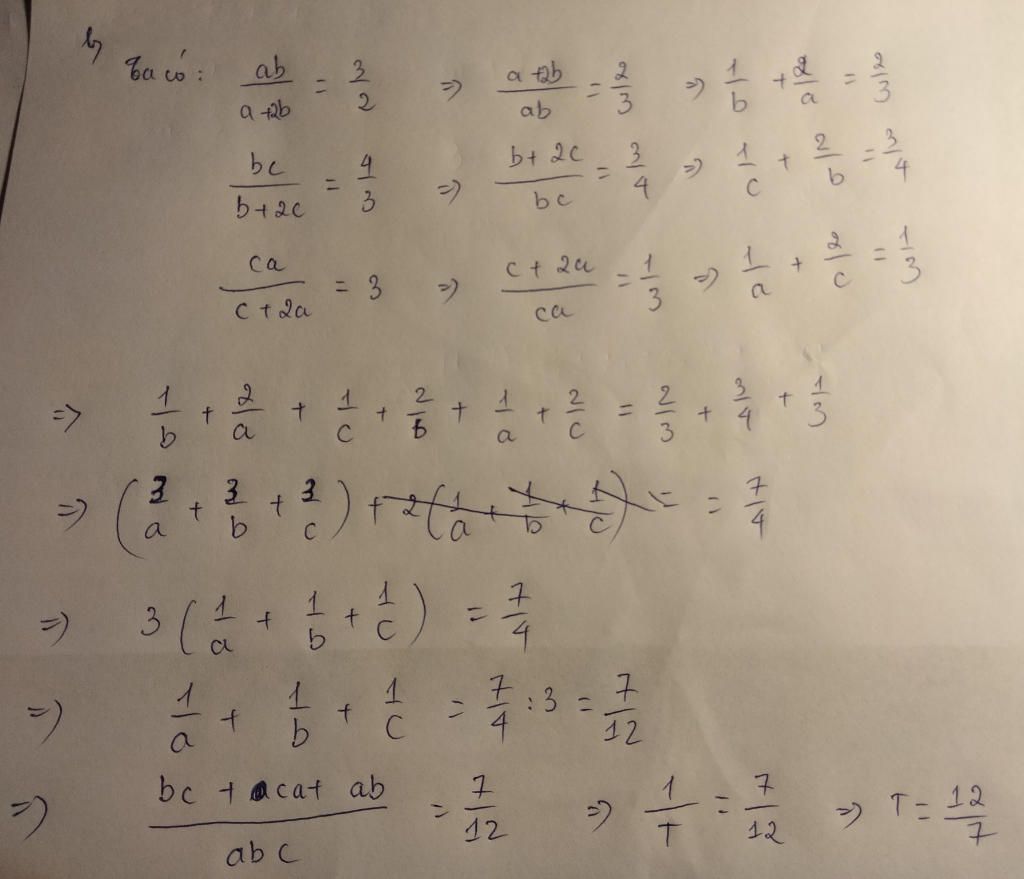 b,
Ta có: ab/(a+2b) = 3/2 => (a+2b)/ab = 2/3 => 1/b + 2/a = 2/3
bc/(b+2c) = 4/3 => (b+2c)/bc = 3/4 => 1/c + 2/b = 3/4
ca/(c+2a) = 3 => (c+2a)/ca = 1/3 => 1/a + 2/c = 1/3
=> 1/b + 2/a + 1/c + 2/b + 1/a + 2/c = 2/3 + 3/4 + 1/3
=> (3/a + 3/b + 3/c) + 2(1/a + 1/b + 1/c) = = 7/4
=> 3(1/a + 1/b + 1/c) = 7/4
=> 1/a + 1/b + 1/c = 7/4 : 3 = 7/12
=> (bc + ca + ab)/abc = 7/12 => 1/T = 7/12 => T = 12/7